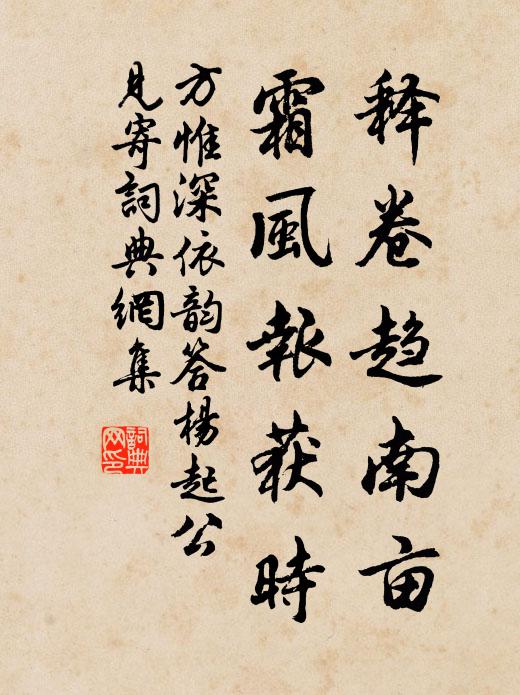 释卷趋南亩
霜風報获時
方惟深依韵答楊起公
見寄詞典網集
詞典
网印